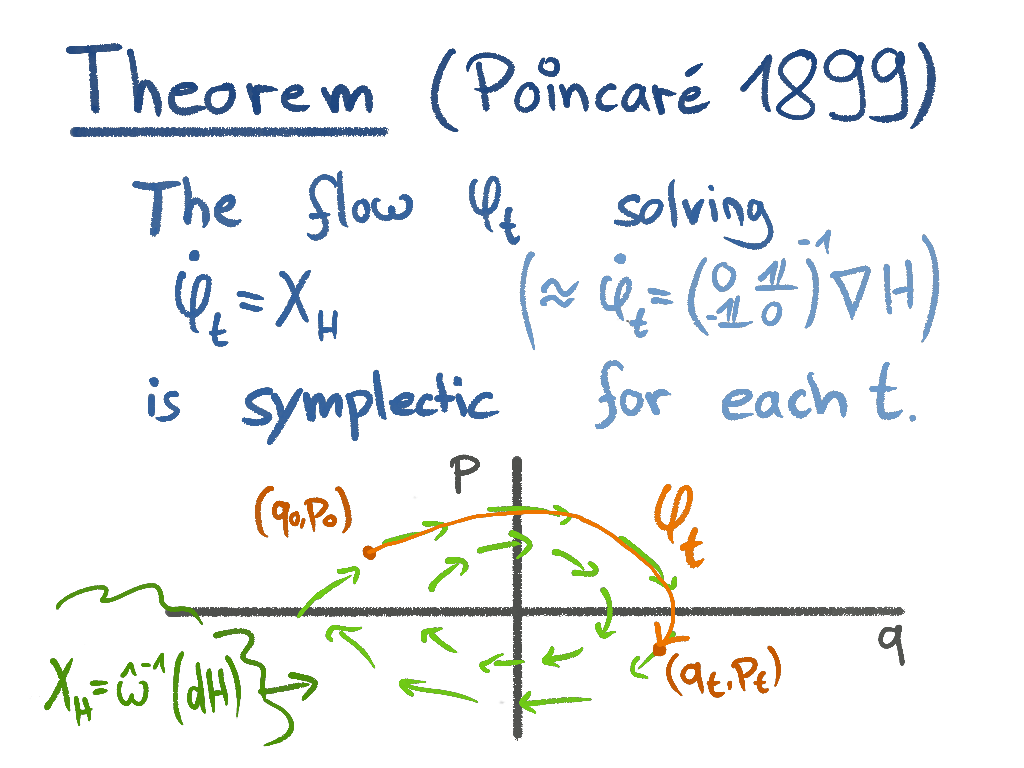 Theorem (Poincaré 1899)
The flow φ_t solving
φ̇_t = X_H (≈ φ̇_t = (0 𝟙 -𝟙 0)^-1 ∇H)
is symplectic for each t.
p
(q₀,p₀) φ_t
q
X_H = ω̂^-1 (dH)
(q_t,p_t)